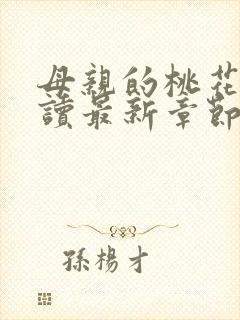 母親的桃花
讀最新章節
孫楊才